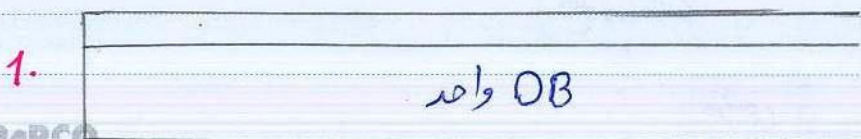 1.
واحد OB